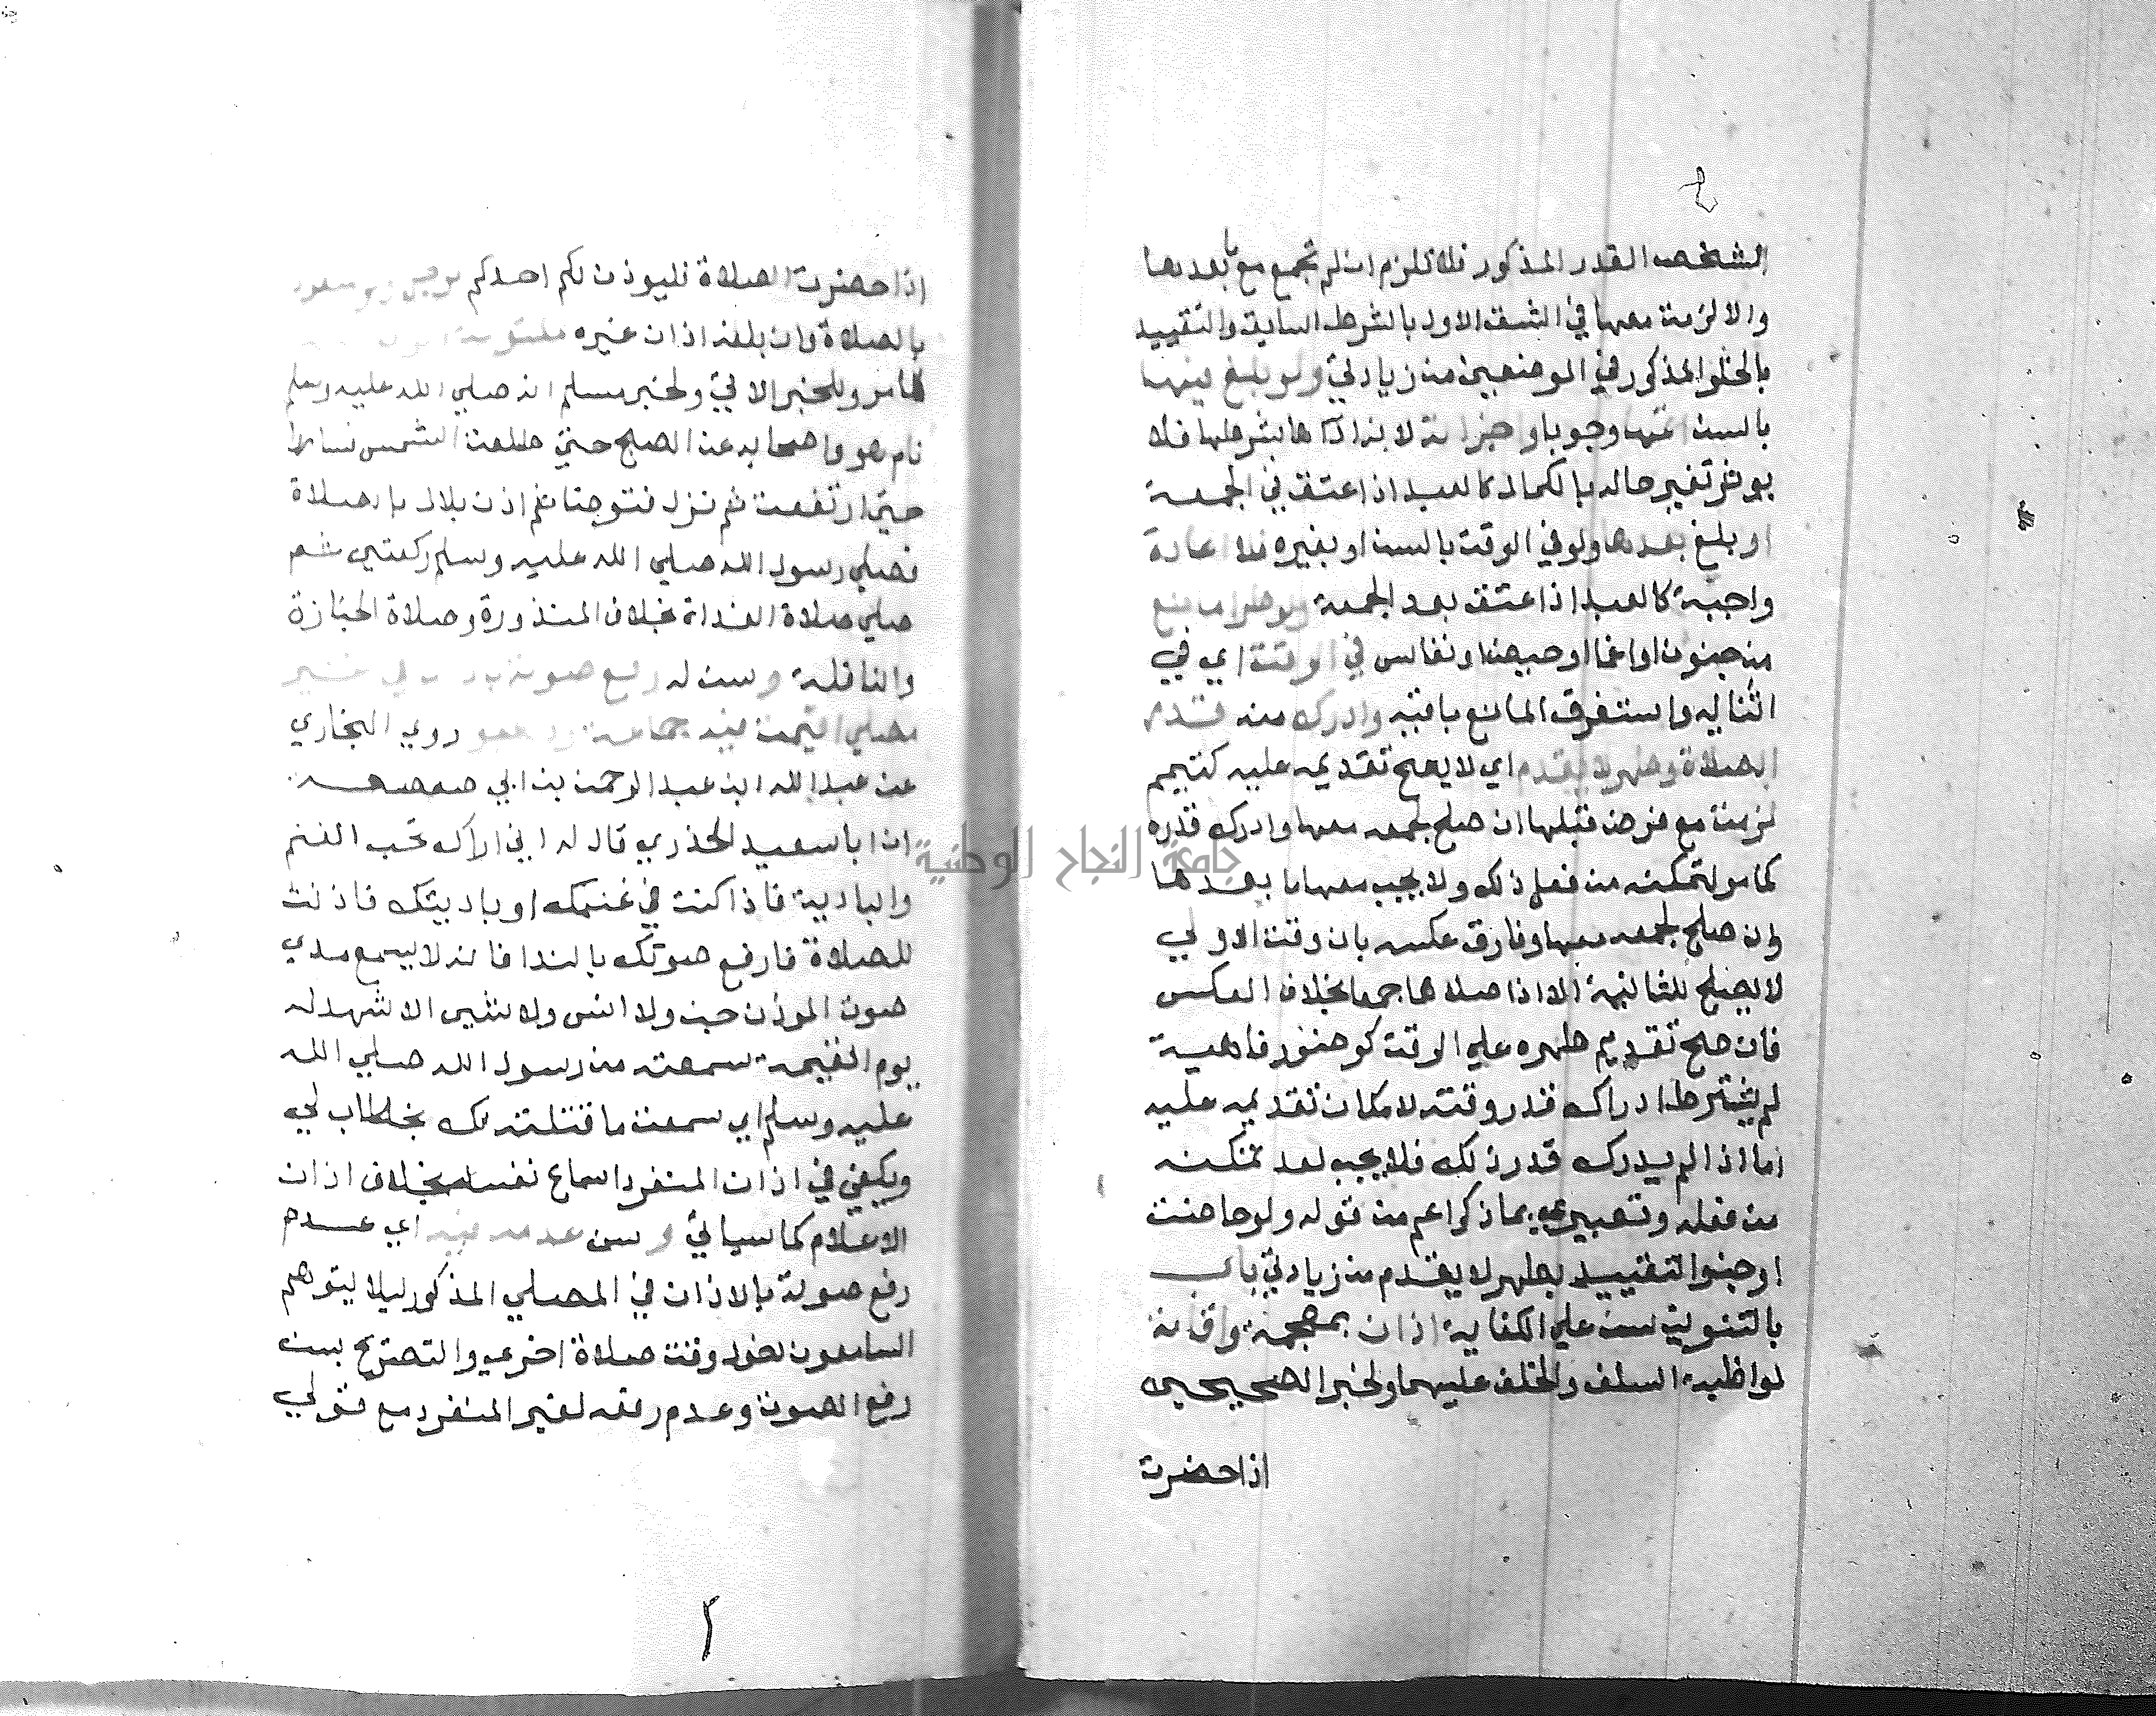 الشخص القدر المذكور فلا تلزم ان لم تجمع مع ما بعدها
والا لزمت معها في الشق الاول بالشرط السابق والتقييد
بالخلو المذكور في الموضعين من زيادتي ولو بلغ فيها
بالسن اتمها وجوبا واجزاته لانه اداها بشرطها فلا
يوثر تغير حاله بالكمال كالعبد اذا عتق في الجمعة
او بلغ بعدها ولو في الوقت بالسن او بغيره فلا اعادة
واجبة كالعبد اذا عتق بعد الجمعة ولو طرا مانع
من جنون او اغما او حيض او نفاس في الوقت اي في
اثنايه واستغرق المانع باقيه وادرك منه قدر
الصلاة وطهر لا يقدم اي لا يصح تقديمه عليه كتيمم
لزمت مع فرض قبلها ان صلح لجمعه معها وادرك قدره
كما مر لتمكنه من فعل ذلك ولا يجب معها ما بعدها
وان صلح لجمعه معها وفارق عكسه بان وقت الاولي
لا يصلح للثانية الا اذا صلاهما جمعا بخلاف العكس
فان صح تقديم طهره علي الوقت كوضوء رفاهية
لم يشترط ادراك قدر وقته لامكان تقديمه عليه
اما اذا لم يدرك قدر ذلك فلا يجب لعدم تمكنه
من فعله وتعبيري بما ذكر اعم من قوله ولو حاضت
او جن والتقييد بطهر لا يقدم من زيادتي باب
بالتنوين سن علي الكفاية اذان بمعجمة واقامة
لمواظبة السلف والخلف عليهما ولخبر الصحيحين
اذا حضرت
اذا حضرت الصلاة فليوذن لكم احدكم
بالصلاة وان بلغه اذان غيره
كما مر وللخبر الاتي ولخبر مسلم انه صلي الله عليه وسلم
نام هو واصحابه عن الصبح حتي طلعت الشمس فساروا
حتي ارتفعت ثم نزل فتوضا ثم اذن بلال بالصلاة
فصلي رسول الله صلي الله عليه وسلم ركعتين ثم
صلي صلاة الغداة بخلاف المنذورة وصلاة الجنازة
والنافلة وسن له رفع صوته به في غير
مصلي اقيمت فيه جماعة وذهبو روي البخاري
عن عبد الله ابن عبد الرحمن بن ابي صعصعه
ان ابا سعيد الخدري قال له اني اراك تحب الغنم
والبادية فاذا كنت في غنمك او باديتك فاذنت
للصلاة فارفع صوتك بالندا فانه لا يسمع مدي
صوت الموذن جن ولا انس ولا شي الا شهد له
يوم القيمة سمعته من رسول الله صلي الله
عليه وسلم اي سمعت ما قلته لك بخطاب لي
ويكفي في اذان المنفرد اسماع نفسه بخلاف اذان
الاعلام كما سياتي و سن عدمه فيه اي عدم
رفع صوته بالاذان في المصلي المذكور ليلا يتوهم
السامعون دخول وقت صلاة اخري والتصريح بسن
رفع الصوت وعدم رفعه لغير المنفرد مع قولي
جامعة النجاح الوطنية